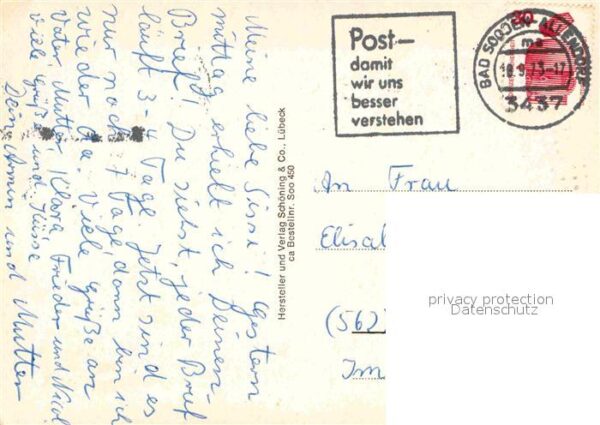 Meine liebe Sissi! Gestern
mittag erhielt ich Deinen
Brief! Du siehst, jeder Brief
läuft 3-4 Tage. Jetzt sind es
nur noch 7 Tage, dann bin ich
wieder da. Viele Grüße an
Vater, Mutter, Klara, Frieder und Nicol
viele Grüße und Küsse
Dein Armin und Mutter
Hersteller und Verlag Schöning & Co., Lübeck
ca Bestellnr. Soo 450
Post—
damit
wir uns
besser
verstehen
BAD SOODEN-ALLENDORF
ma
18.9.73-17
3437
An Frau
Elisa
(562
Im
privacy protection
Datenschutz